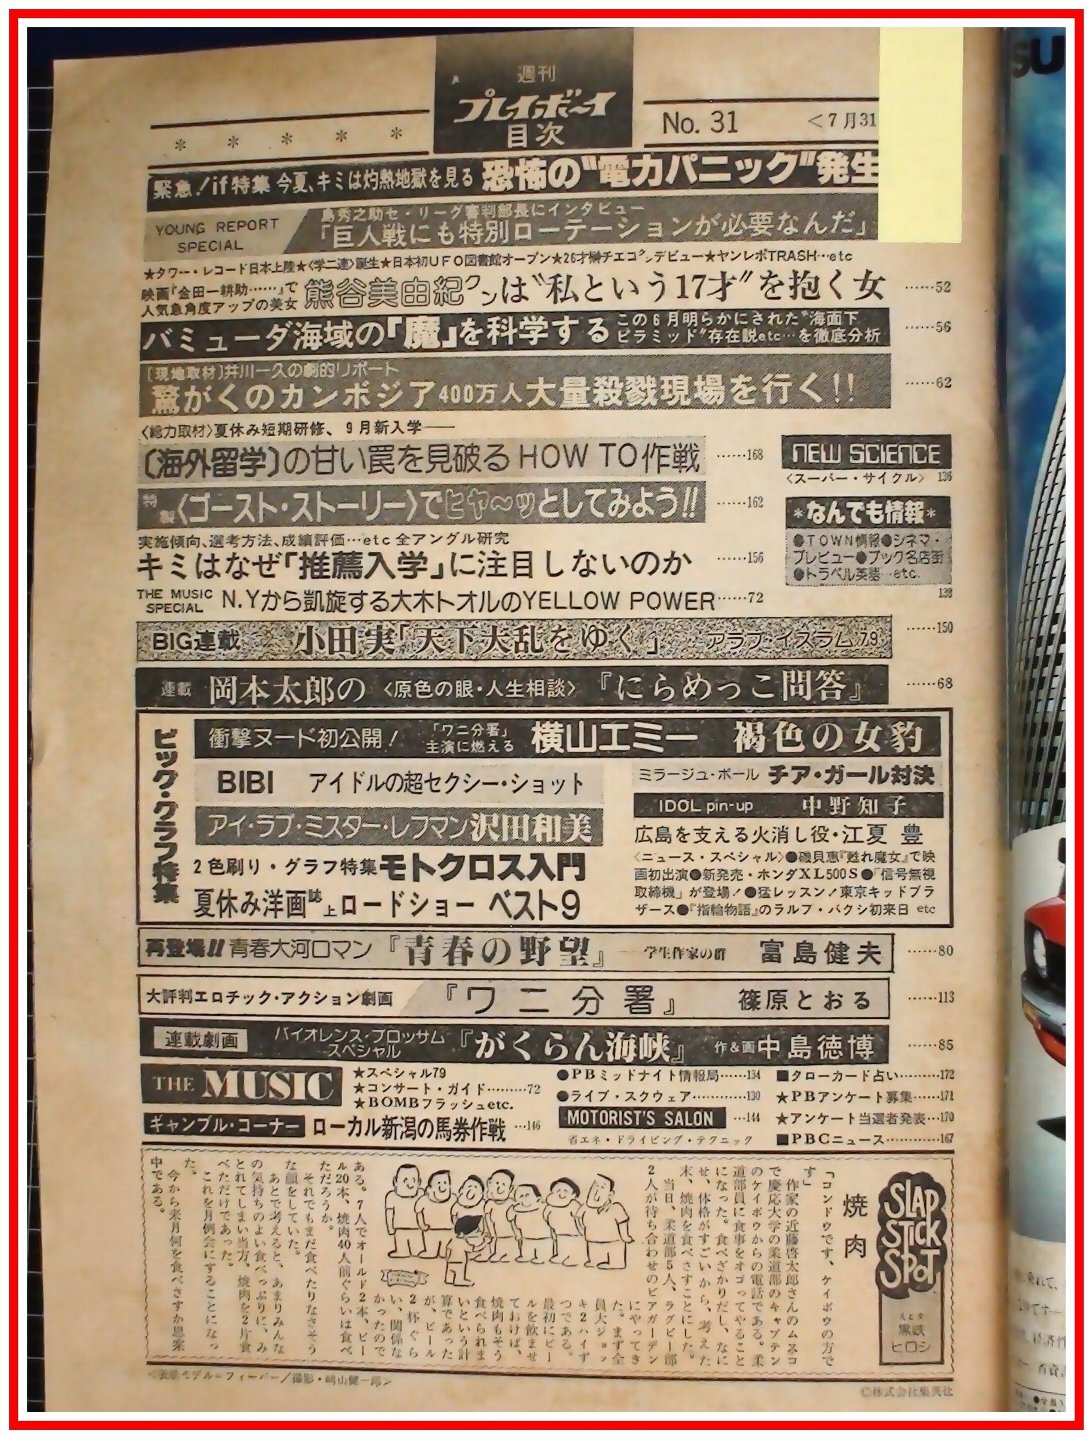 週刊
プレイボーイ
目次
No. 31
<7月31
* * * * *
緊急!if特集 今夏、キミは灼熱地獄を見る 恐怖の"電力パニック"発生
YOUNG REPORT SPECIAL
島秀之助セ・リーグ審判部長にインタビュー
「巨人戦にも特別ローテーションが必要なんだ」
★タワー・レコード日本上陸★〈学二連〉誕生★日本初UFO図書館オープン★26才榊チエコ デビュー★ヤンレポTRASH…etc
映画『金田一耕助……』で
人気急角度アップの美女
熊谷美由紀クンは"私という17才"を抱く女 ……52
バミューダ海域の「魔」を科学する この6月明らかにされた"海面下ピラミッド"存在説etc…を徹底分析 ……56
〔現地取材〕井川一久の劇的リポート
驚がくのカンボジア400万人大量殺戮現場を行く!! ……62
〈総力取材〉夏休み短期研修、9月新入学──
〔海外留学〕の甘い罠を見破るHOW TO作戦 ……168
特製〈ゴースト・ストーリー〉でヒヤ〜ッとしてみよう!! ……162
実施傾向、選考方法、成績評価…etc全アングル研究
キミはなぜ「推薦入学」に注目しないのか ……156
THE MUSIC SPECIAL N.Yから凱旋する大木トオルのYELLOW POWER ……72
NEW SCIENCE
〈スーパー・サイクル〉 136
*なんでも情報*
●TOWN情報●シネマ・
プレビュー●ブック名店街
●トラベル英語…etc.
138
BIG連載 小田実「天下大乱をゆく」 アラブ・イスラム'79 ……150
連載 岡本太郎の〈原色の眼・人生相談〉『にらめっこ問答』 ……68
ビッグ・グラフ特集
衝撃ヌード初公開! 「ワニ分署」主演に燃える 横山エミー 褐色の女豹
BIBI アイドルの超セクシー・ショット
アイ・ラブ・ミスター・レフマン 沢田和美
2色刷り・グラフ特集 モトクロス入門
夏休み洋画誌上ロードショー ベスト9
ミラージュ・ボール チア・ガール対決
IDOL pin-up 中野知子
広島を支える火消し役・江夏 豊
〈ニュース・スペシャル〉●磯貝恵『甦れ魔女』で映
画初出演●新発売・ホンダXL500S●「信号無視
取締機」が登場!●猛レッスン!東京キッドブラ
ザース●『指輪物語』のラルフ・バクシ初来日 etc
再登場!! 青春大河ロマン『青春の野望』 ─学生作家の群 富島健夫 ……80
大評判エロチック・アクション劇画『ワニ分署』 篠原とおる ……113
連載劇画 バイオレンス・ブロッサム スペシャル『がくらん海峡』 作&画 中島徳博 ……85
THE MUSIC
★スペシャル79
★コンサート・ガイド………72
★BOMBフラッシュetc.
ギャンブル・コーナー ローカル新潟の馬券作戦 …146
●PBミッドナイト情報局……134
●ライブ・スクウェア…………130
MOTORIST'S SALON …144
省エネ・ドライビング・テクニック
■タローカード占い………172
★PBアンケート募集……171
★アンケート当選者発表…170
■PBCニュース…………167
SLAP STICK SPOT
えと文
黒鉄ヒロシ
焼肉
「コンドウです、ケイボウの方で
す」
作家の近藤啓太郎さんのムスコ
で慶応大学の柔道部のキャプテン
のケイボウからの電話である。柔
道部員に食事をオゴってやること
になった。食べざかりだし、なに
せ、体格がすごいから、考えた
末、焼肉を食べさすことにした。
当日、柔道部5人、ラグビー部
2人が待ち合わせのビ
アガーデン
にやってき
た。まず全
員大ジョッ
キ2ハイず
つである。
最初にビー
ルを飲ませ
ておけば、
焼肉もそう
食べられま
いという計
算であった
が、ビール
2杯ぐら
い、関係な
かったので
ある。7人でオールド2本、ビー
ル20本、焼肉40人前ぐらいは食べ
ただろうか。
それでもまだ食べたりなさそう
な顔をしていた。
あとで考えると、あまりみんな
の気持ちのよい食べっぷりに、み
とれてしまい当方、焼肉を2片食
べただけであった。
これを月例会にすることになっ
た。
今から来月何を食べさすか思案
中である。
©株式会社集英社